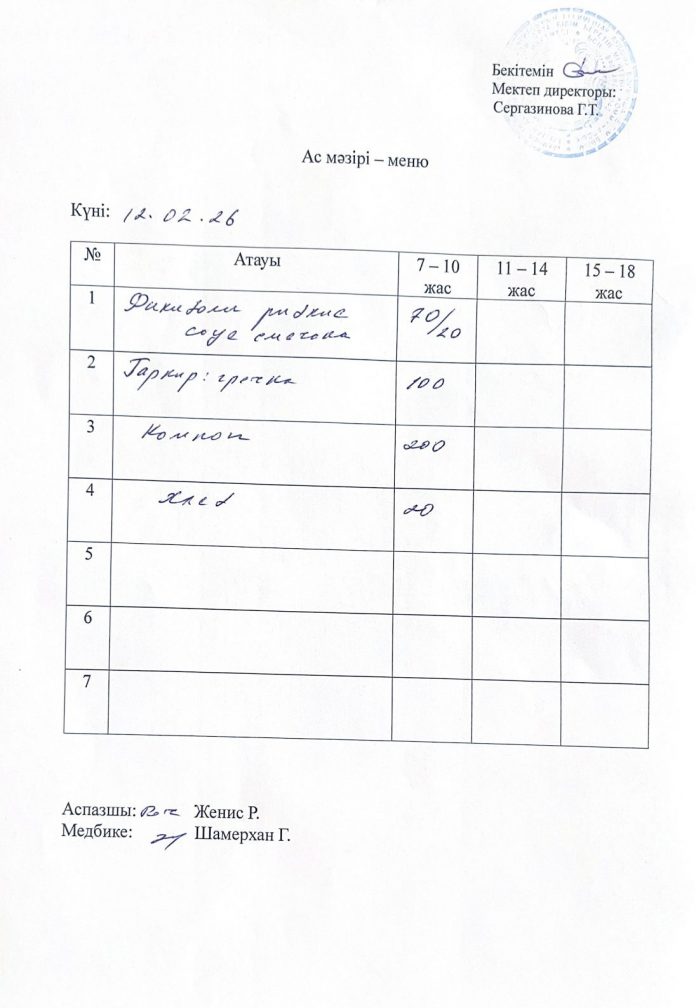 Бекітемін
Мектеп директоры:
Сергазинова Г.Т.
Ас мәзірі – меню
Күні: 12.02.26
№ Атауы 7 – 10 жас 11 – 14 жас 15 – 18 жас
1 рибкие 70/20
соус сметона
2 Гарнир: гречка 100
3 Компот 200
4 Хлеб 20
5
6
7
Аспазшы: Женис Р.
Медбике: Шамерхан Г.